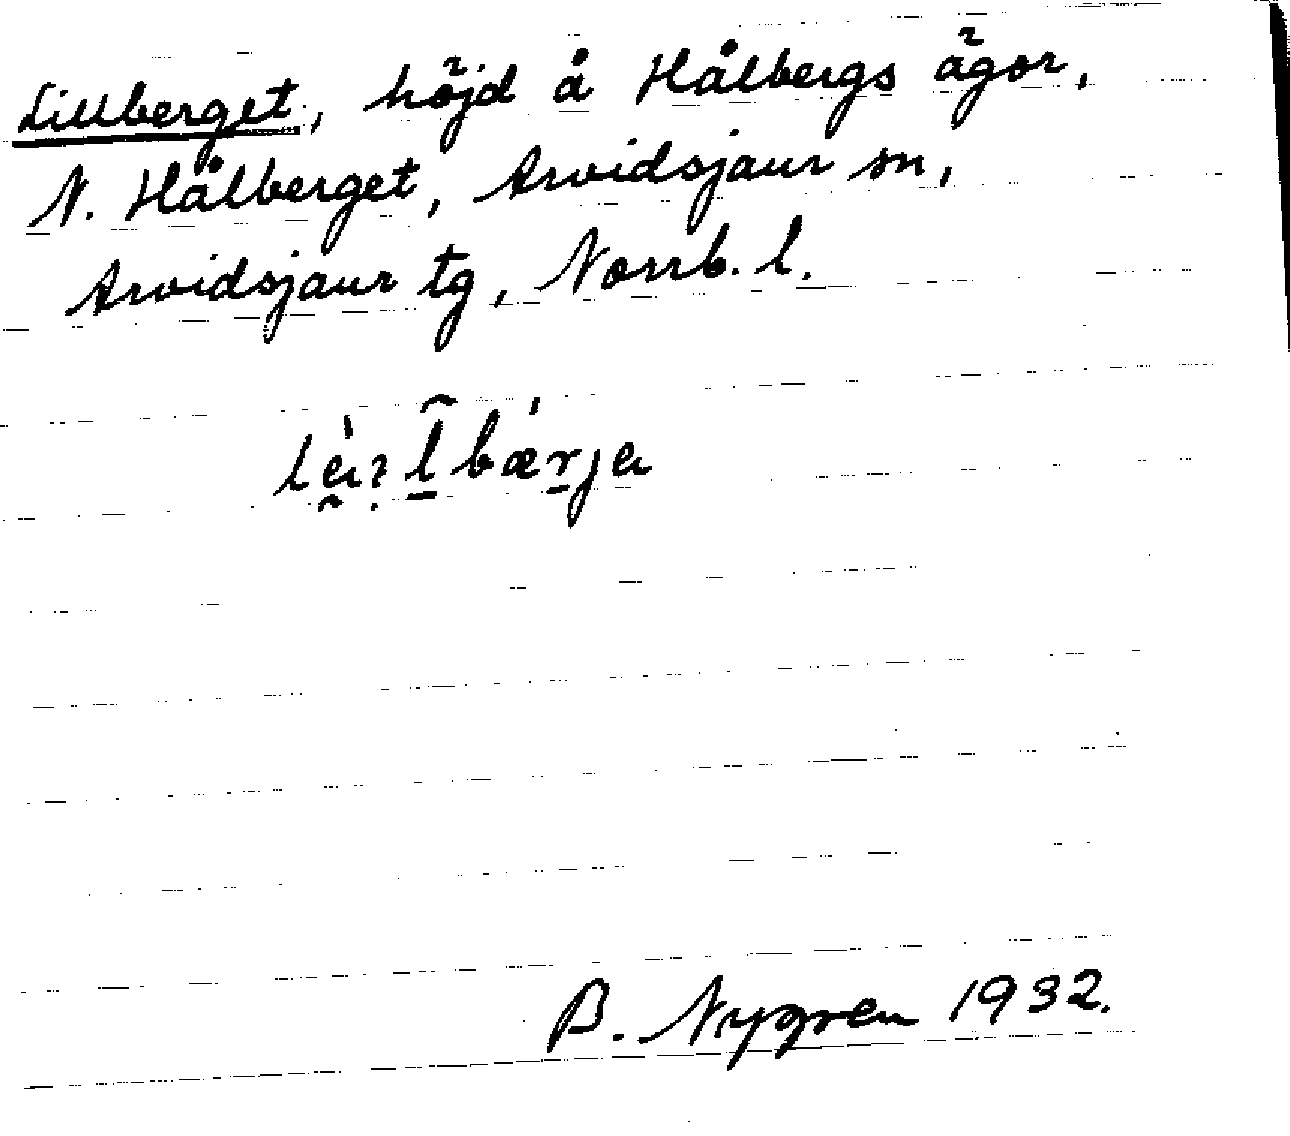 Lillberget, höjd å Hålbergs ägor,
N. Hålberget, Arvidsjaur sn,
Arvidsjaur tg, Norrb. l.
B. Nygren 1932.